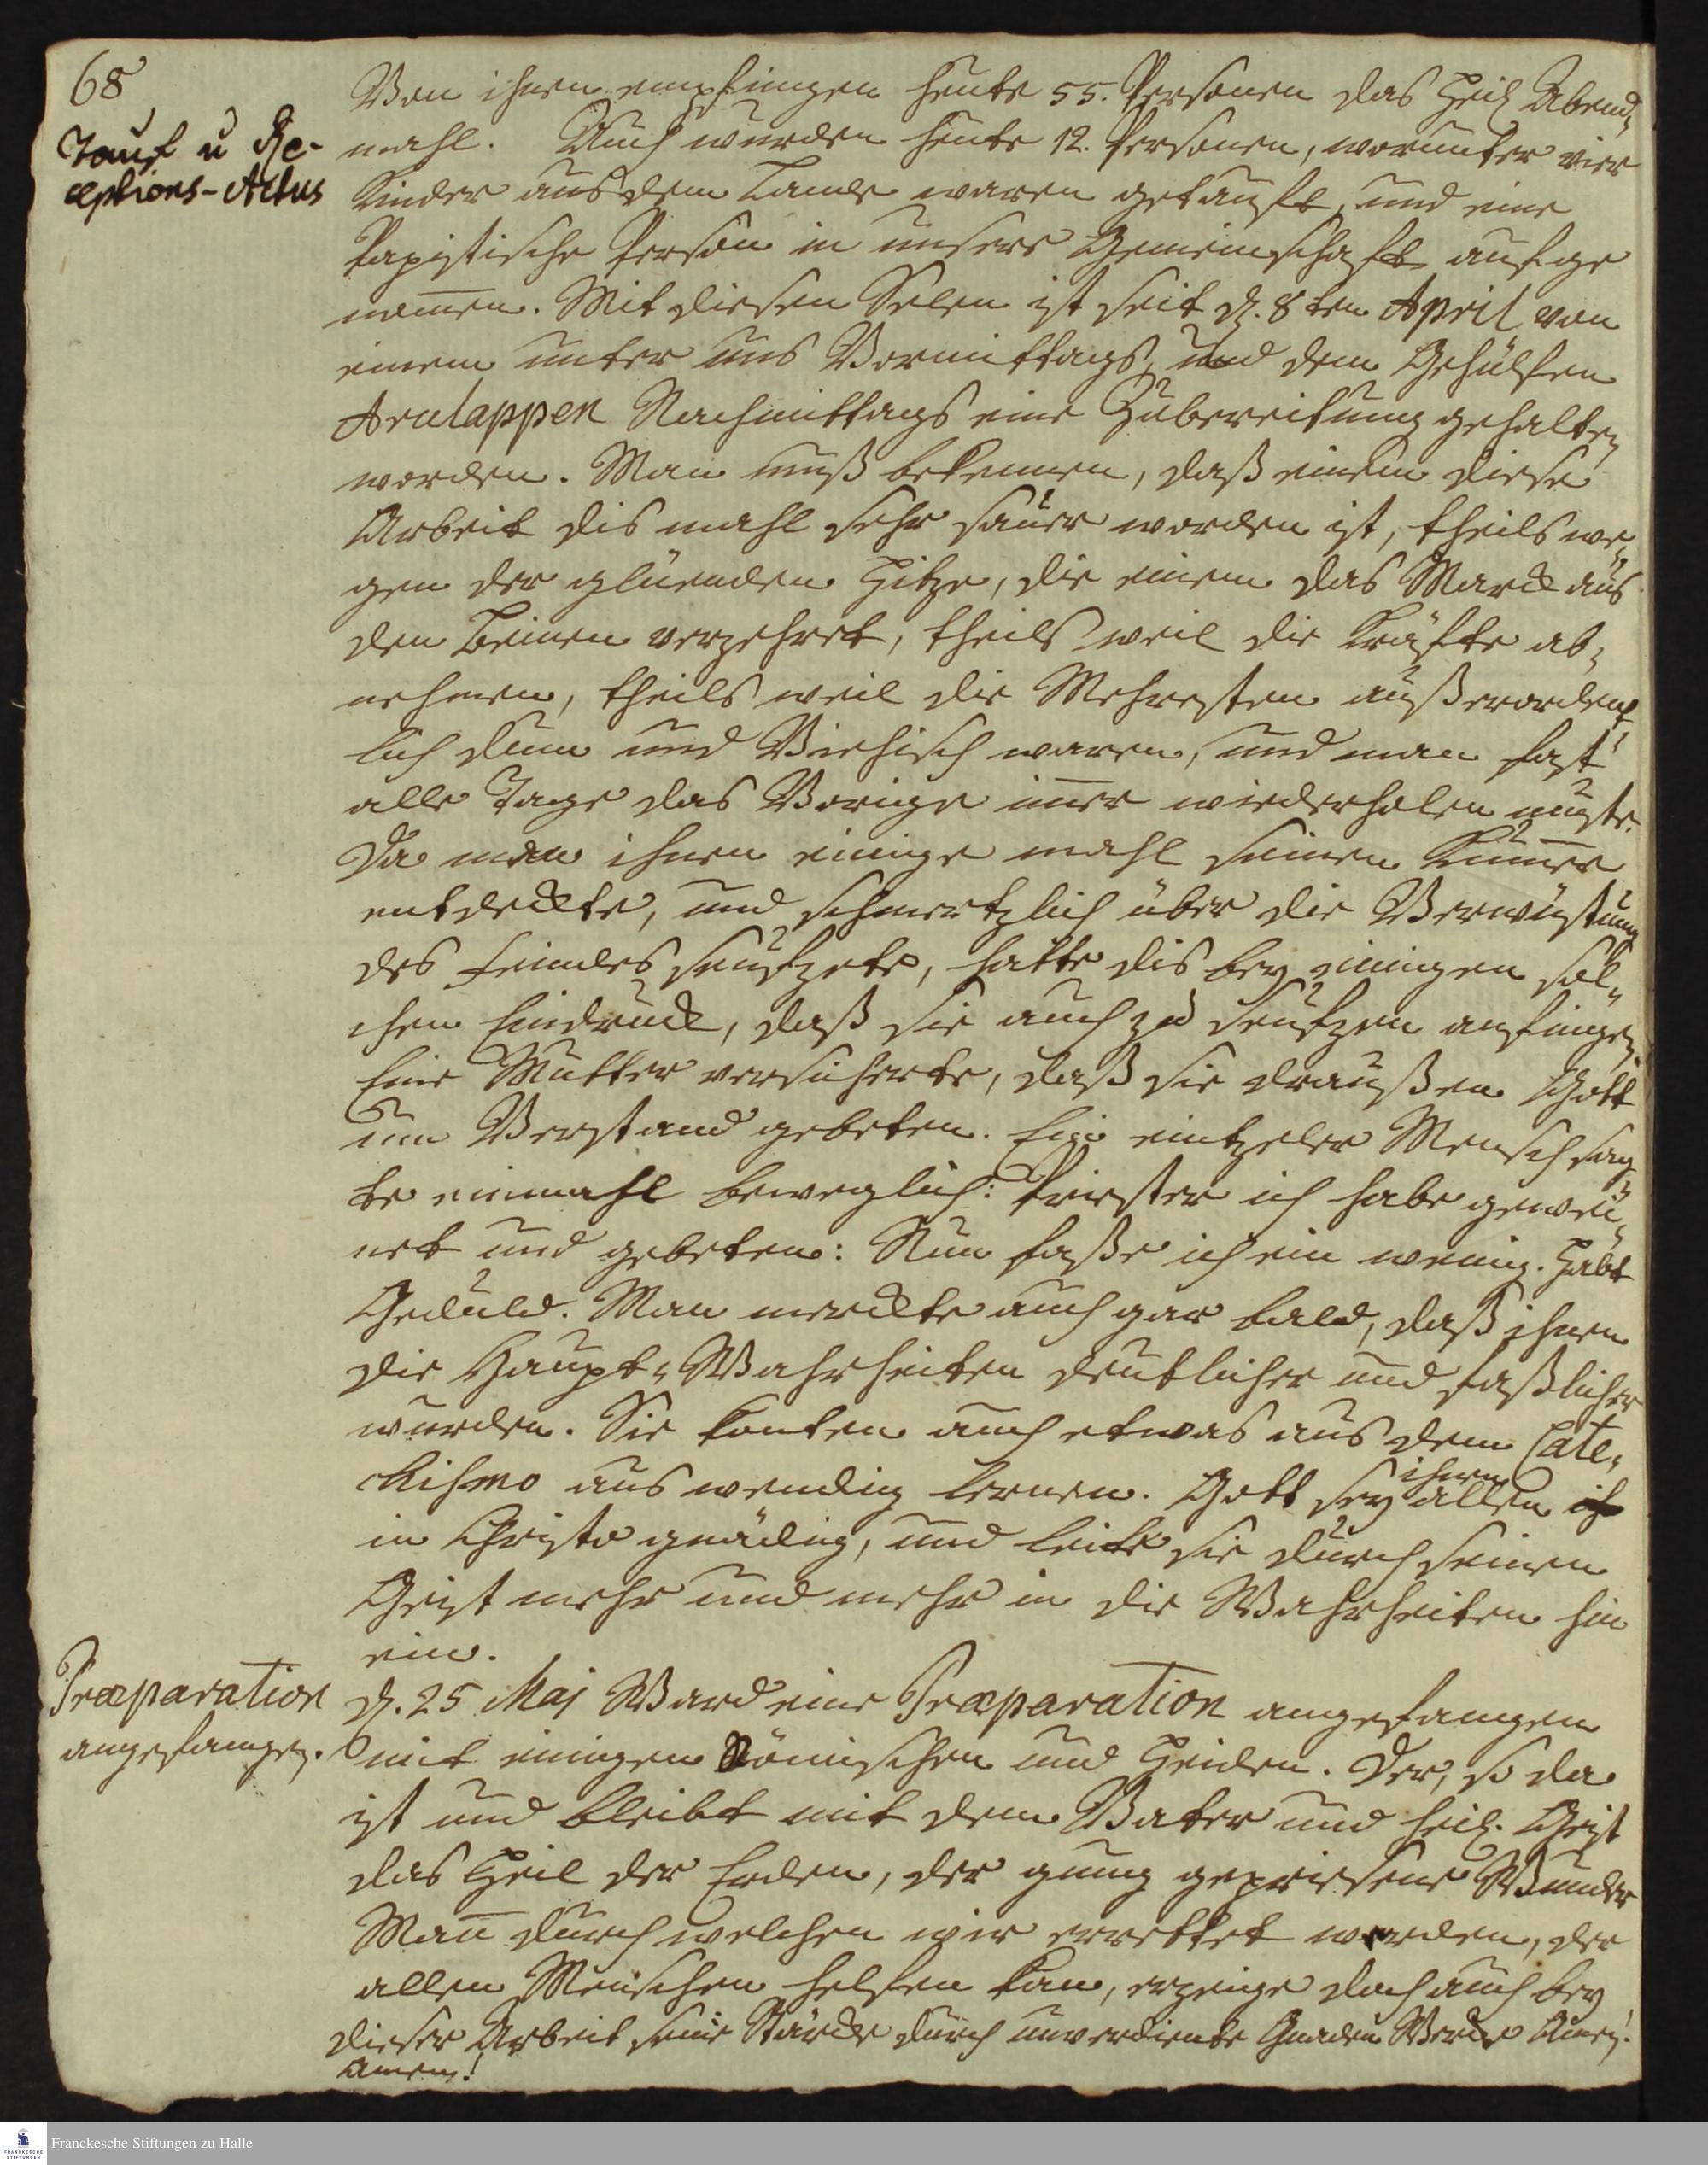 68
Tauf u Re-
ceptions-Actus
Von ihnen empfingen heute 55. Personen das Heil Abend„
mahl. Auch wurden heute 12. Personen, worunter vier
Kinder aus dem Lande waren getauft, und eine
Papistische Person in unsere Gemeinschaft aufge
nom̄en. Mit diesen Selen ist seit d. 8ten April von
einem unter uns Vormittags, und dem Gehülfen
Arulappen Nachmittags eine Zubereitung gehalten
worden. Man muß bekennen, daß einem diese
Arbeit dis mahl sehr sauer worden ist, theils we„
gen der glüenden Hitze, die einem das Marck aus
den Beinen verzehret, theils weil die Kräfte ab„
nehmen, theils weil die Mehresten außerordent„
lich dum und Viehisch waren, und man fast
alle Tage das Vorige im̄er wiederholen muste.
Da man ihnen einige mahl seinen Kum̄er
entdeckte, und schmertzlich über die Verwüstung
des Feindes seufzete, hatte dis bey einigen sol„
chen Eindruck, daß sie auch zu seufzen anfingen.
Eine Mutter versicherte, daß sie draußen Gott
um Verstand gebeten. Ein eintzeler Mensch sag„
te einmahl beweglich: Priester ich habe gewei„
net und gebeten: Nun faße ich ein wenig. Habt
Geduld. Man merckte auch gar bald, daß ihnen
die Haupt„Wahrheiten deutlicher und faßlicher
wurden. Sie konten auch etwas aus dem Cate„
chismo auswendig lernen. Gott sey ihnen allen
in Christo gnädig, und leite sie durch seinen
Geist mehr und mehr in die Wahrheiten hin
ein.
Præparation
angefangen.
d. 25 Maj Ward eine Præparation angefangen
mit einigen Römischen und Heiden. Der, so da
ist und bleibt mit dem Vater und heil. Geist
das Heil der Erden, der gnug gepriesene Wunder
Mañ durch welchen wir errettet werden, der
allen Menschen helfen kan, erzeige doch auch bey
dieser Arbeit seine Stärcke durch unverdiente Gnaden Wercke Amen!
Amen!
Franckesche Stiftungen zu Halle